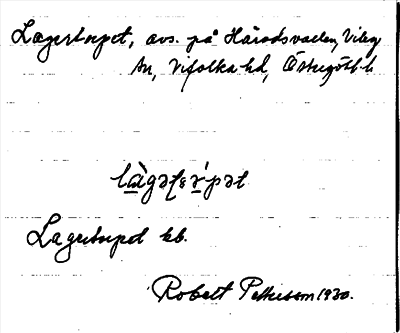 Lagertorpet, avs. på Häradsvallen, Viby
sn, Vifolka hd, Östergötl. l.
Lagertorpet kb.
Robert Pettersson 1930.